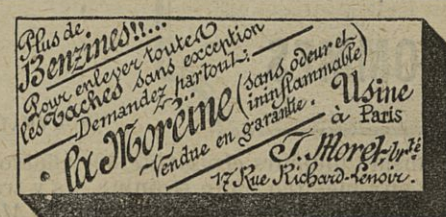 Plus de
Benzines!!...
Pour enlever toutes
les Taches sans exception
Demandez partout:
la Moréine (sans odeur et
ininflammable)
Vendue en garantie.
Usine
à Paris
J. Moret, br.té
17 Rue Richard-Lenoir.